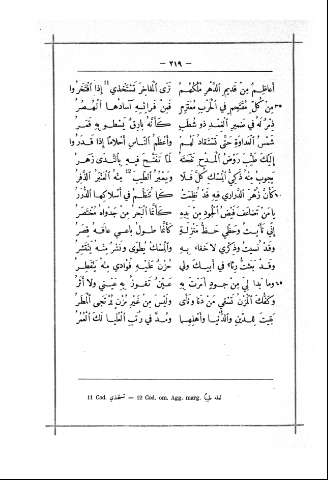 — ٢١٩ —
أعاظم من قديم الدهر ملكهم ترى المفاخر تستخذي¹¹ إذا افتخروا
٣٥ من كل مقتحم في الحرب معتزم فمن فرائسه آسادها الهصر
ذمر له في ضمير الغمد ذو شطب كأنه بارق يسطو به قمر
شمس العداوة حتى تستقاد لهم وأعظم الناس أحلاما إذا قدروا
إليك طيب روض المدح تفتحه لما تفتح فيه بالندى زهر
يجوب منه ذكي المسك كل فلا ويعبر الطيب¹² منه العنبر الذفر
٤٠ كأن زهر الدراري فيه قد نظمت كما تنظم في أسلاكها الدرر
يا من تضاعف فيض الجود من يده كأنما البحر من جدواه مختصر
إني نأيت وحظي حط منزلة كأنما طول باعي عاقه قصر
وقد نسيت وذكري لا خفاء به والمسك يطوى ونشر منه ينتشر
وقد بعثت رثاء في أبيك ولي حزن عليه فؤادي منه ينفطر
٤٥ وما بدا لي من جود أمرت به عين تفوز به عيني ولا أثر
وكفك المزن تسقي من دنا ونأى وليس من غير مزن يرتجى المطر
بقيت للدين والدنيا وأهلهما ومد في رتب العليا لك العمر
11 Cod. تستحدي — 12 Cod. om. Agg. marg. لعله طيبا